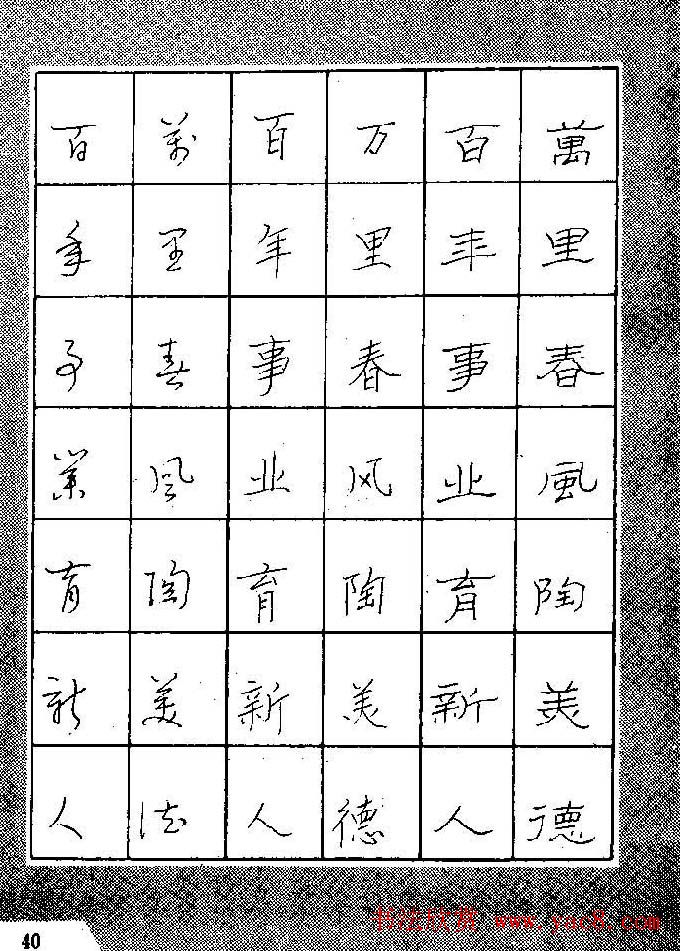 萬里春風陶美德
百年事业育新人
万里春风陶美德
百年事业育新人
萬里春風陶美德
百年事業育新人
书法欣赏 www.yac8.com
40